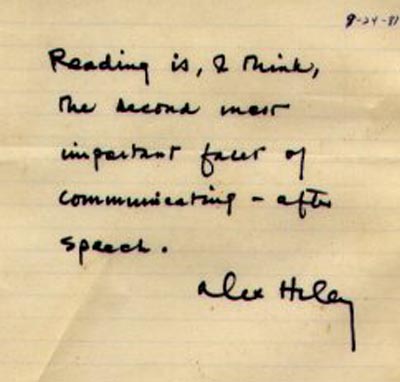 8-24-81
Reading is, I think,
the second most
important facet of
communicating - after
speech.
Alex Haley